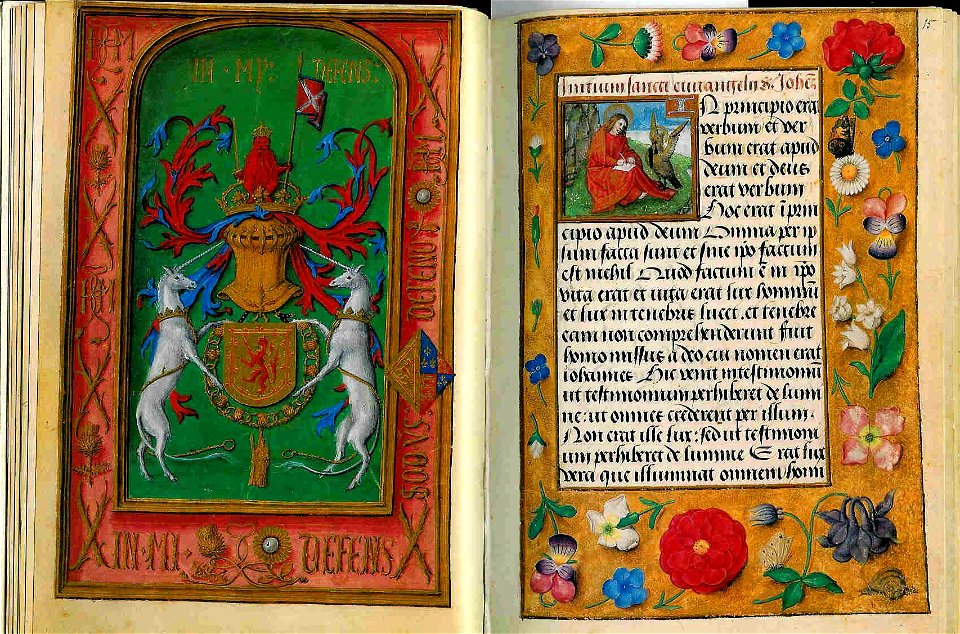 IN · MY: DEFENS:
IN · MI · DEFENS
15
Initium sancti euangelii s. Johẽ
IN principio era
verbum et ver
bum erat apud
deum et deus
erat verbum
Hoc erat ĩ prin
cipio apud deum Omnia per ip
sum facta sunt et sine ipo factum
est nichil Quod factum ẽ in ipo
vita erat et vita erat lux hominũ
et lux in tenebris lucet. et tenebre
eam non comprehenderunt fuit
homo missus a deo cui nomen erat
Iohannes Hic venit in testimoniũ
ut testimonium perhiberet de lumi
ne: ut omnes crederent per illum.
Non erat ille lux: sed ut testimoni
um perhiberet de lumine Erat lux
vera que illuminat omnem homi